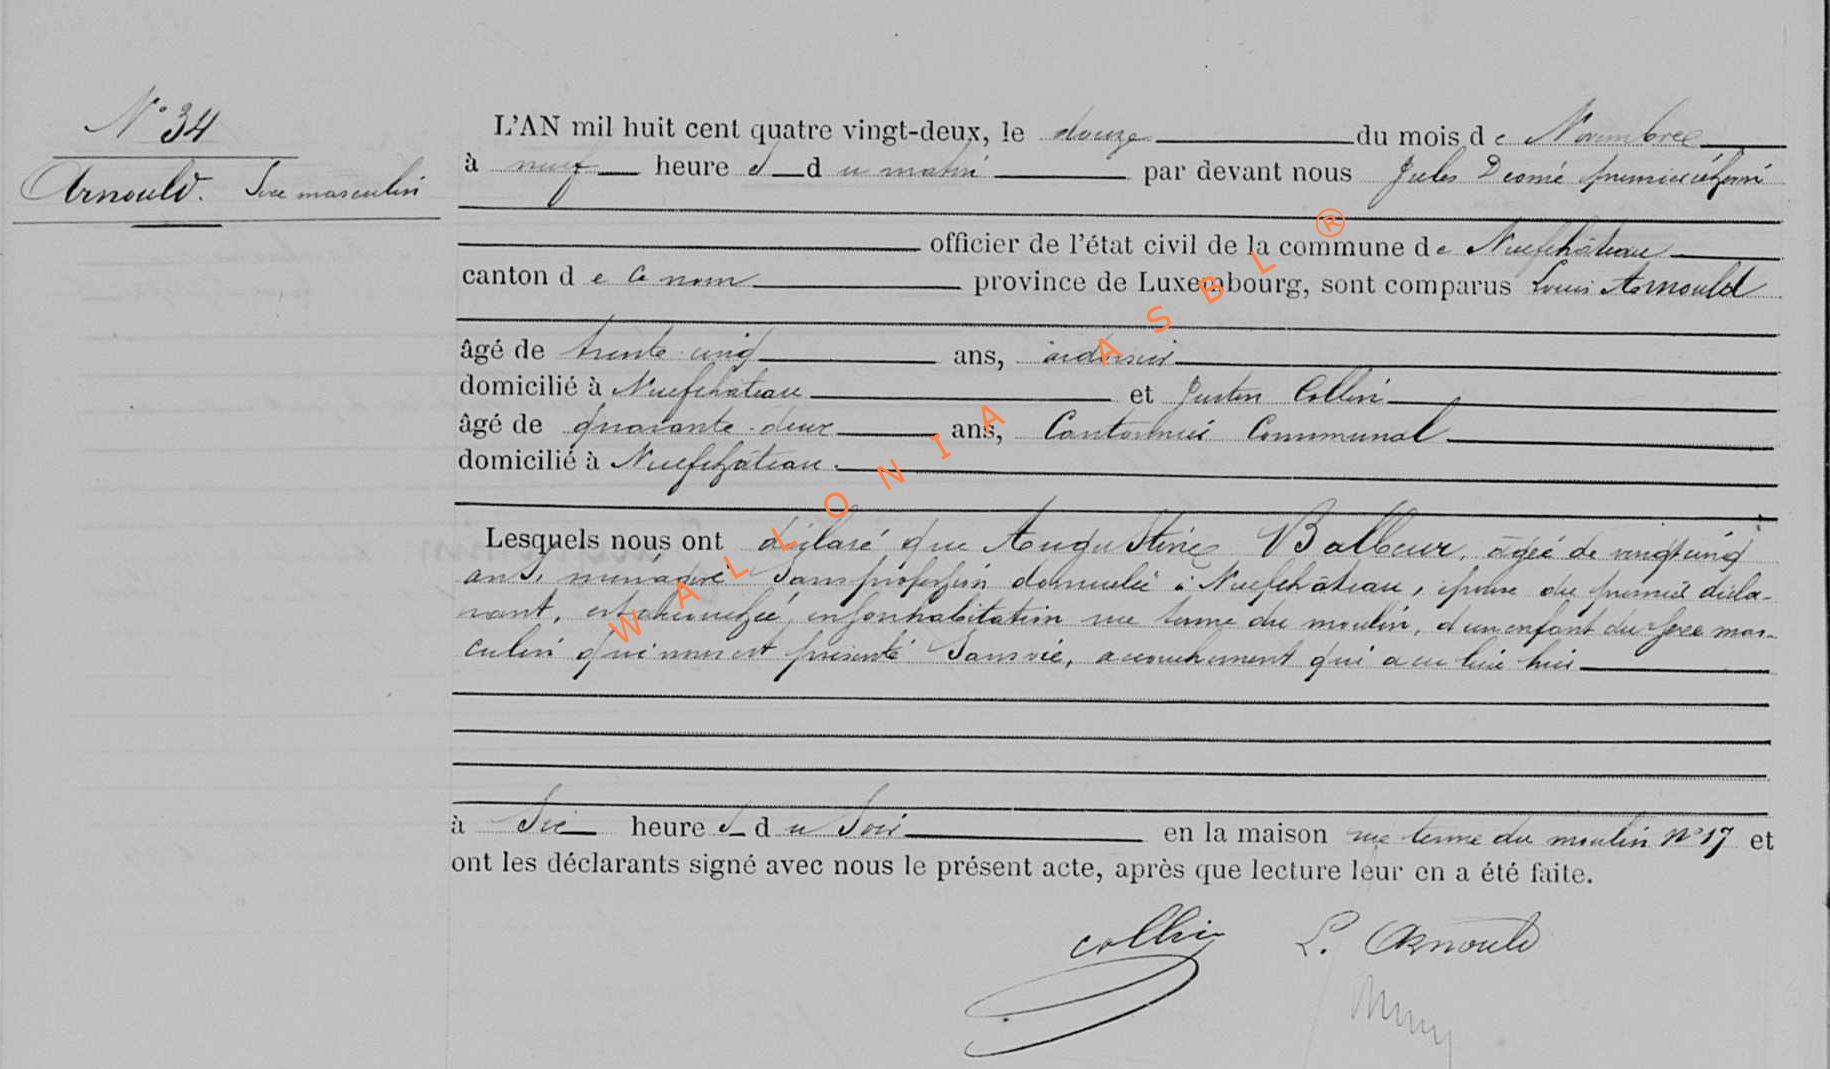 N° 34
Arnould. Sexe masculin
L'AN mil huit cent quatre vingt-deux, le douze du mois de Novembre
à neuf heures du matin par devant nous Jules premier échevin
officier de l'état civil de la commune de Neufchâteau
canton de ce nom province de Luxembourg, sont comparus Louis Arnould
âgé de trente cinq ans,
domicilié à Neufchateau et Justin Collin
âgé de quarante-deux ans, Cantonnier Communal
domicilié à Neufchâteau.
Lesquels nous ont déclaré que Augustine Balbeur, âgée de vingt cinq
ans, ménagère sans profession domiciliée à Neufchâteau, épouse du premier décla-
rant, est accouchée, en son habitation rue terme du moulin, d'un enfant du sexe mas-
culin qui nous est présenté sans vie, accouchement qui a eu lieu hier
à six heures du soir en la maison rue terme du moulin N° 17 et
ont les déclarants signé avec nous le présent acte, après que lecture leur en a été faite.
Collin L. Arnould
WALLONIA ASBL ®